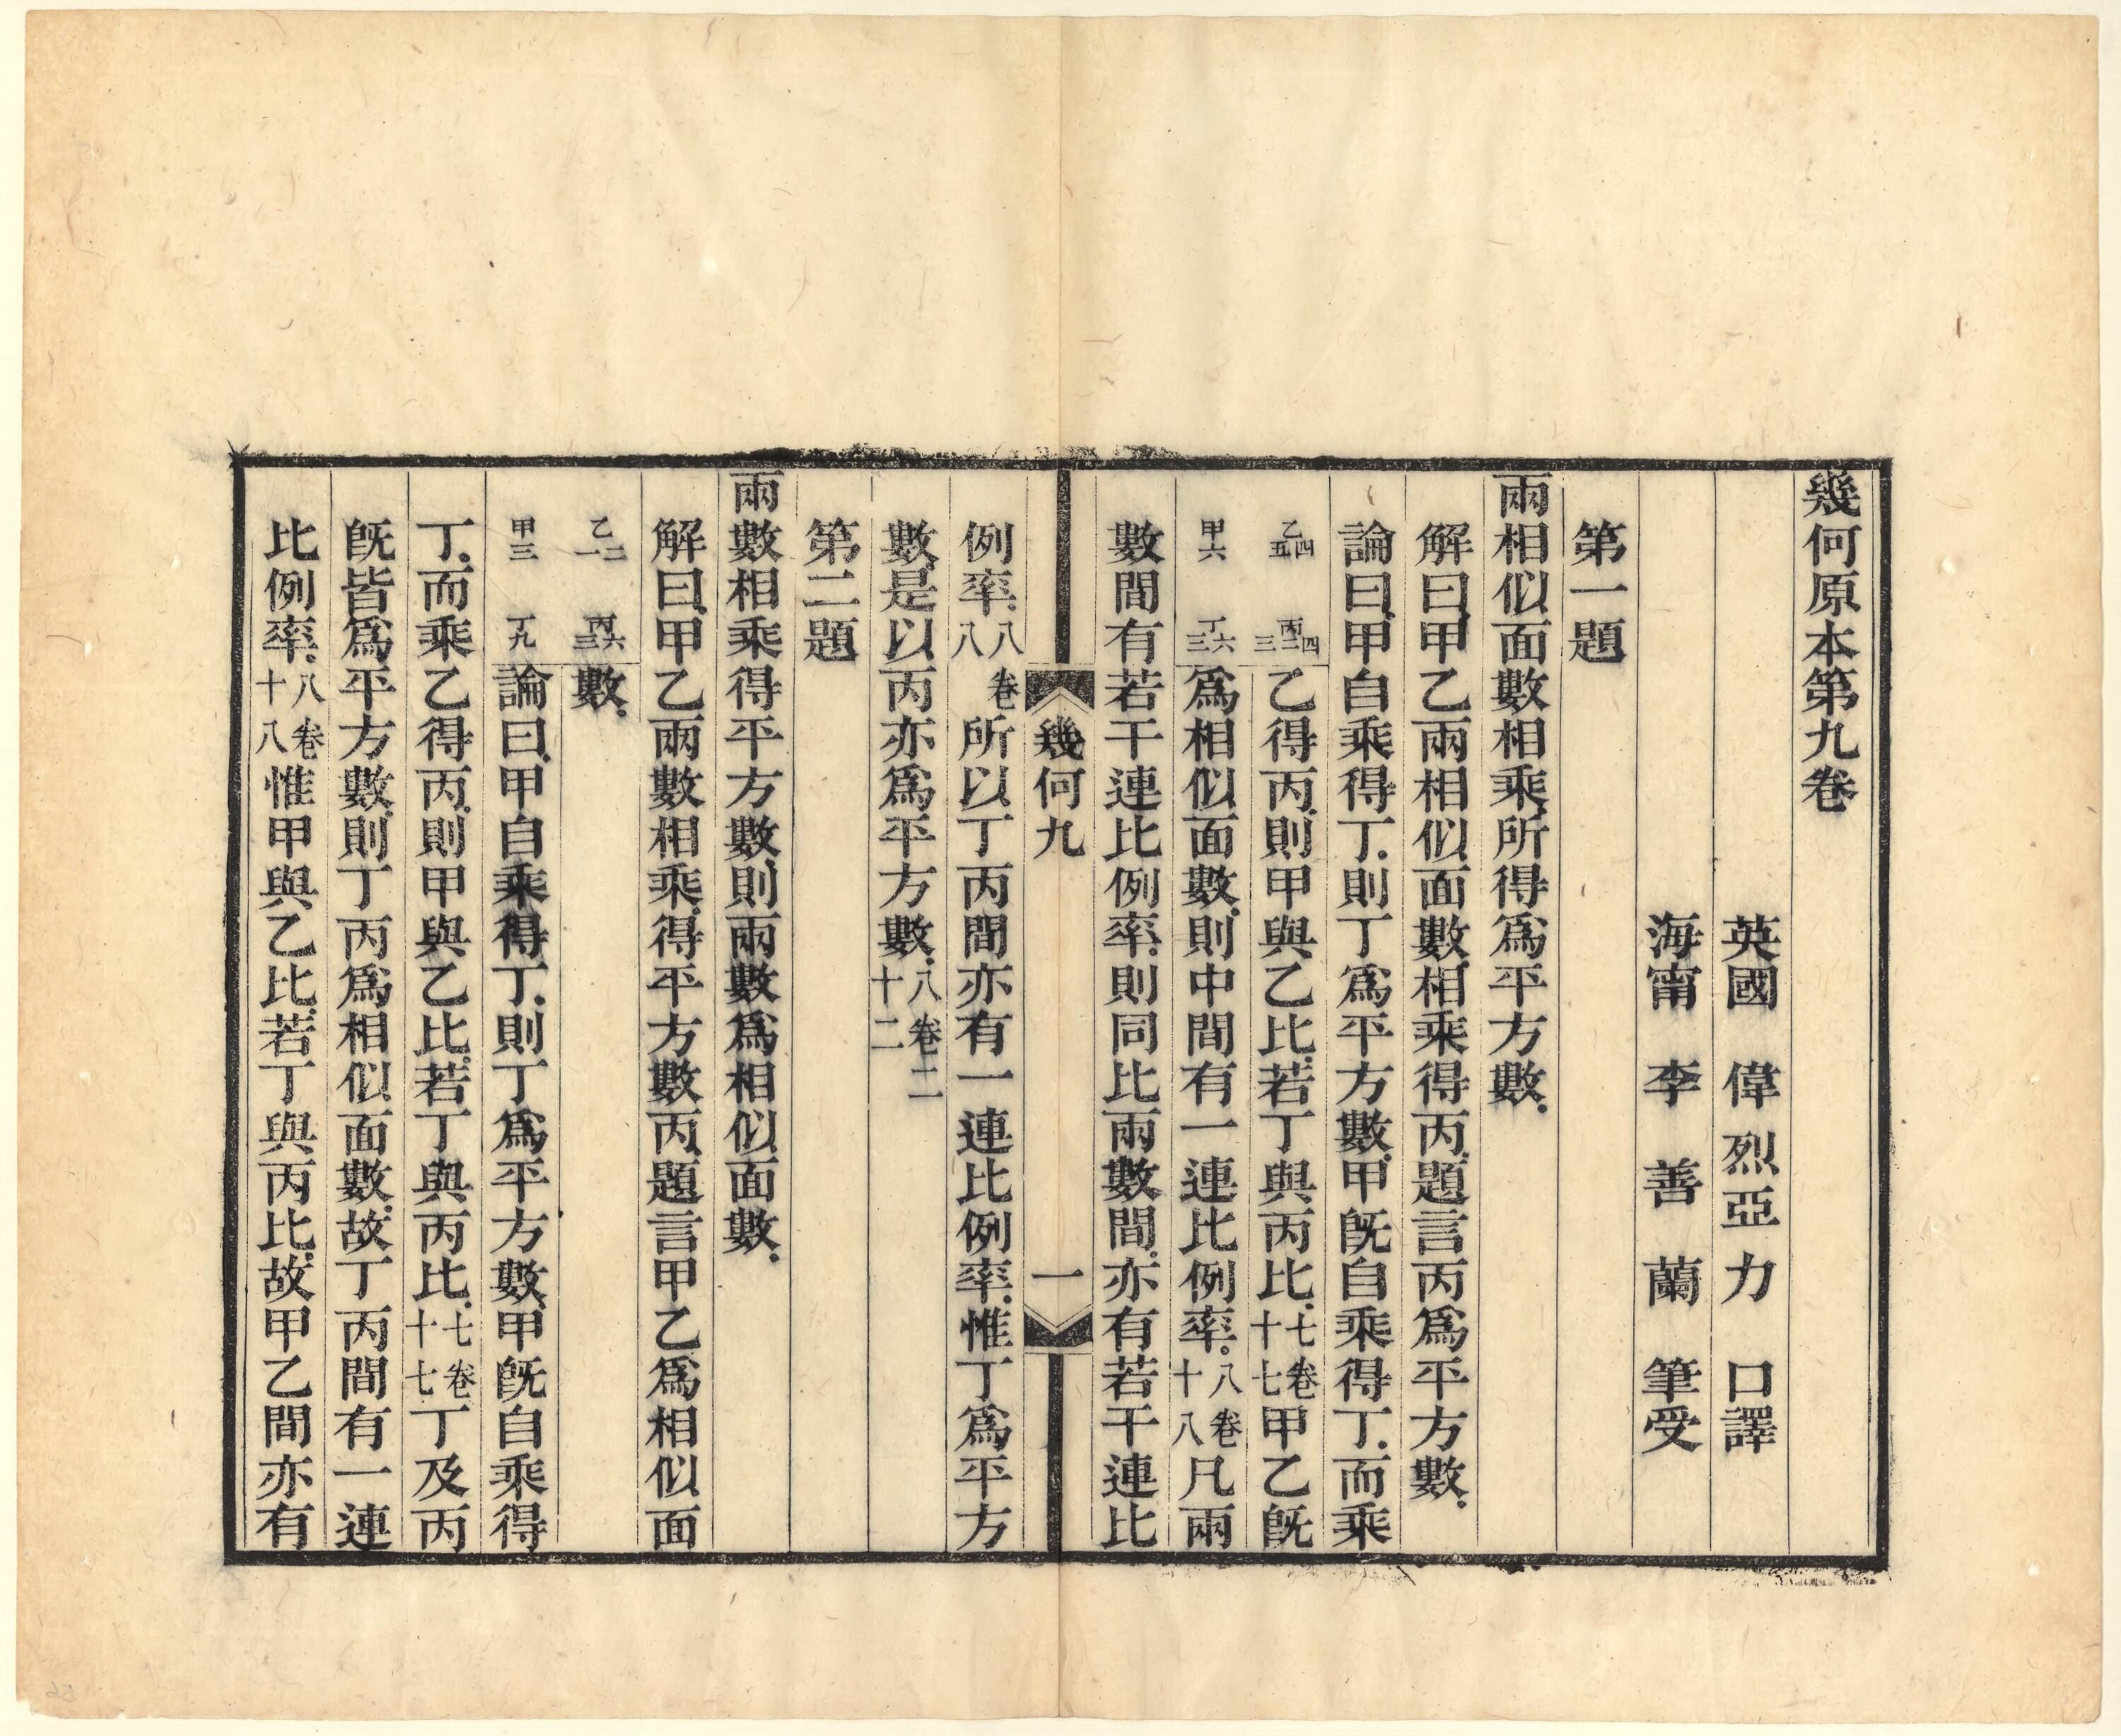 幾何原本第九卷
英國 偉烈亞力 口譯
海甯 李善蘭 筆受
第一題
兩相似面數相乘、所得爲平方數.
解曰、甲乙兩相似面數、相乘得丙、題言丙爲平方數.
論曰、甲自乘得丁.則丁爲平方數、甲旣自乘得丁.而乘
乙五四 丙三二四
乙得丙、則甲與乙比、若丁與丙比.七卷十七甲乙旣
甲六 丁三六
爲相似面數、則中間有一連比例率.八卷十八凡兩
數間有若干連比例率、則同比兩數間、亦有若干連比
幾何九 一
例率.八卷八所以丁丙間亦有一連比例率、惟丁爲平方
數、是以丙亦爲平方數.八卷二十二
第二題
兩數相乘得平方數、則兩數爲相似面數.
解曰、甲乙兩數相乘、得平方數丙、題言甲乙爲相似面
乙一二 丙三六
數.
甲三 丁九
論曰、甲自乘得丁.則丁爲平方數、甲旣自乘得
丁.而乘乙得丙、則甲與乙比、若丁與丙比.七卷十七丁及丙
旣皆爲平方數、則丁丙爲相似面數、故丁丙間有一連
比例率.八卷十八惟甲與乙比、若丁與丙比、故甲乙間亦有